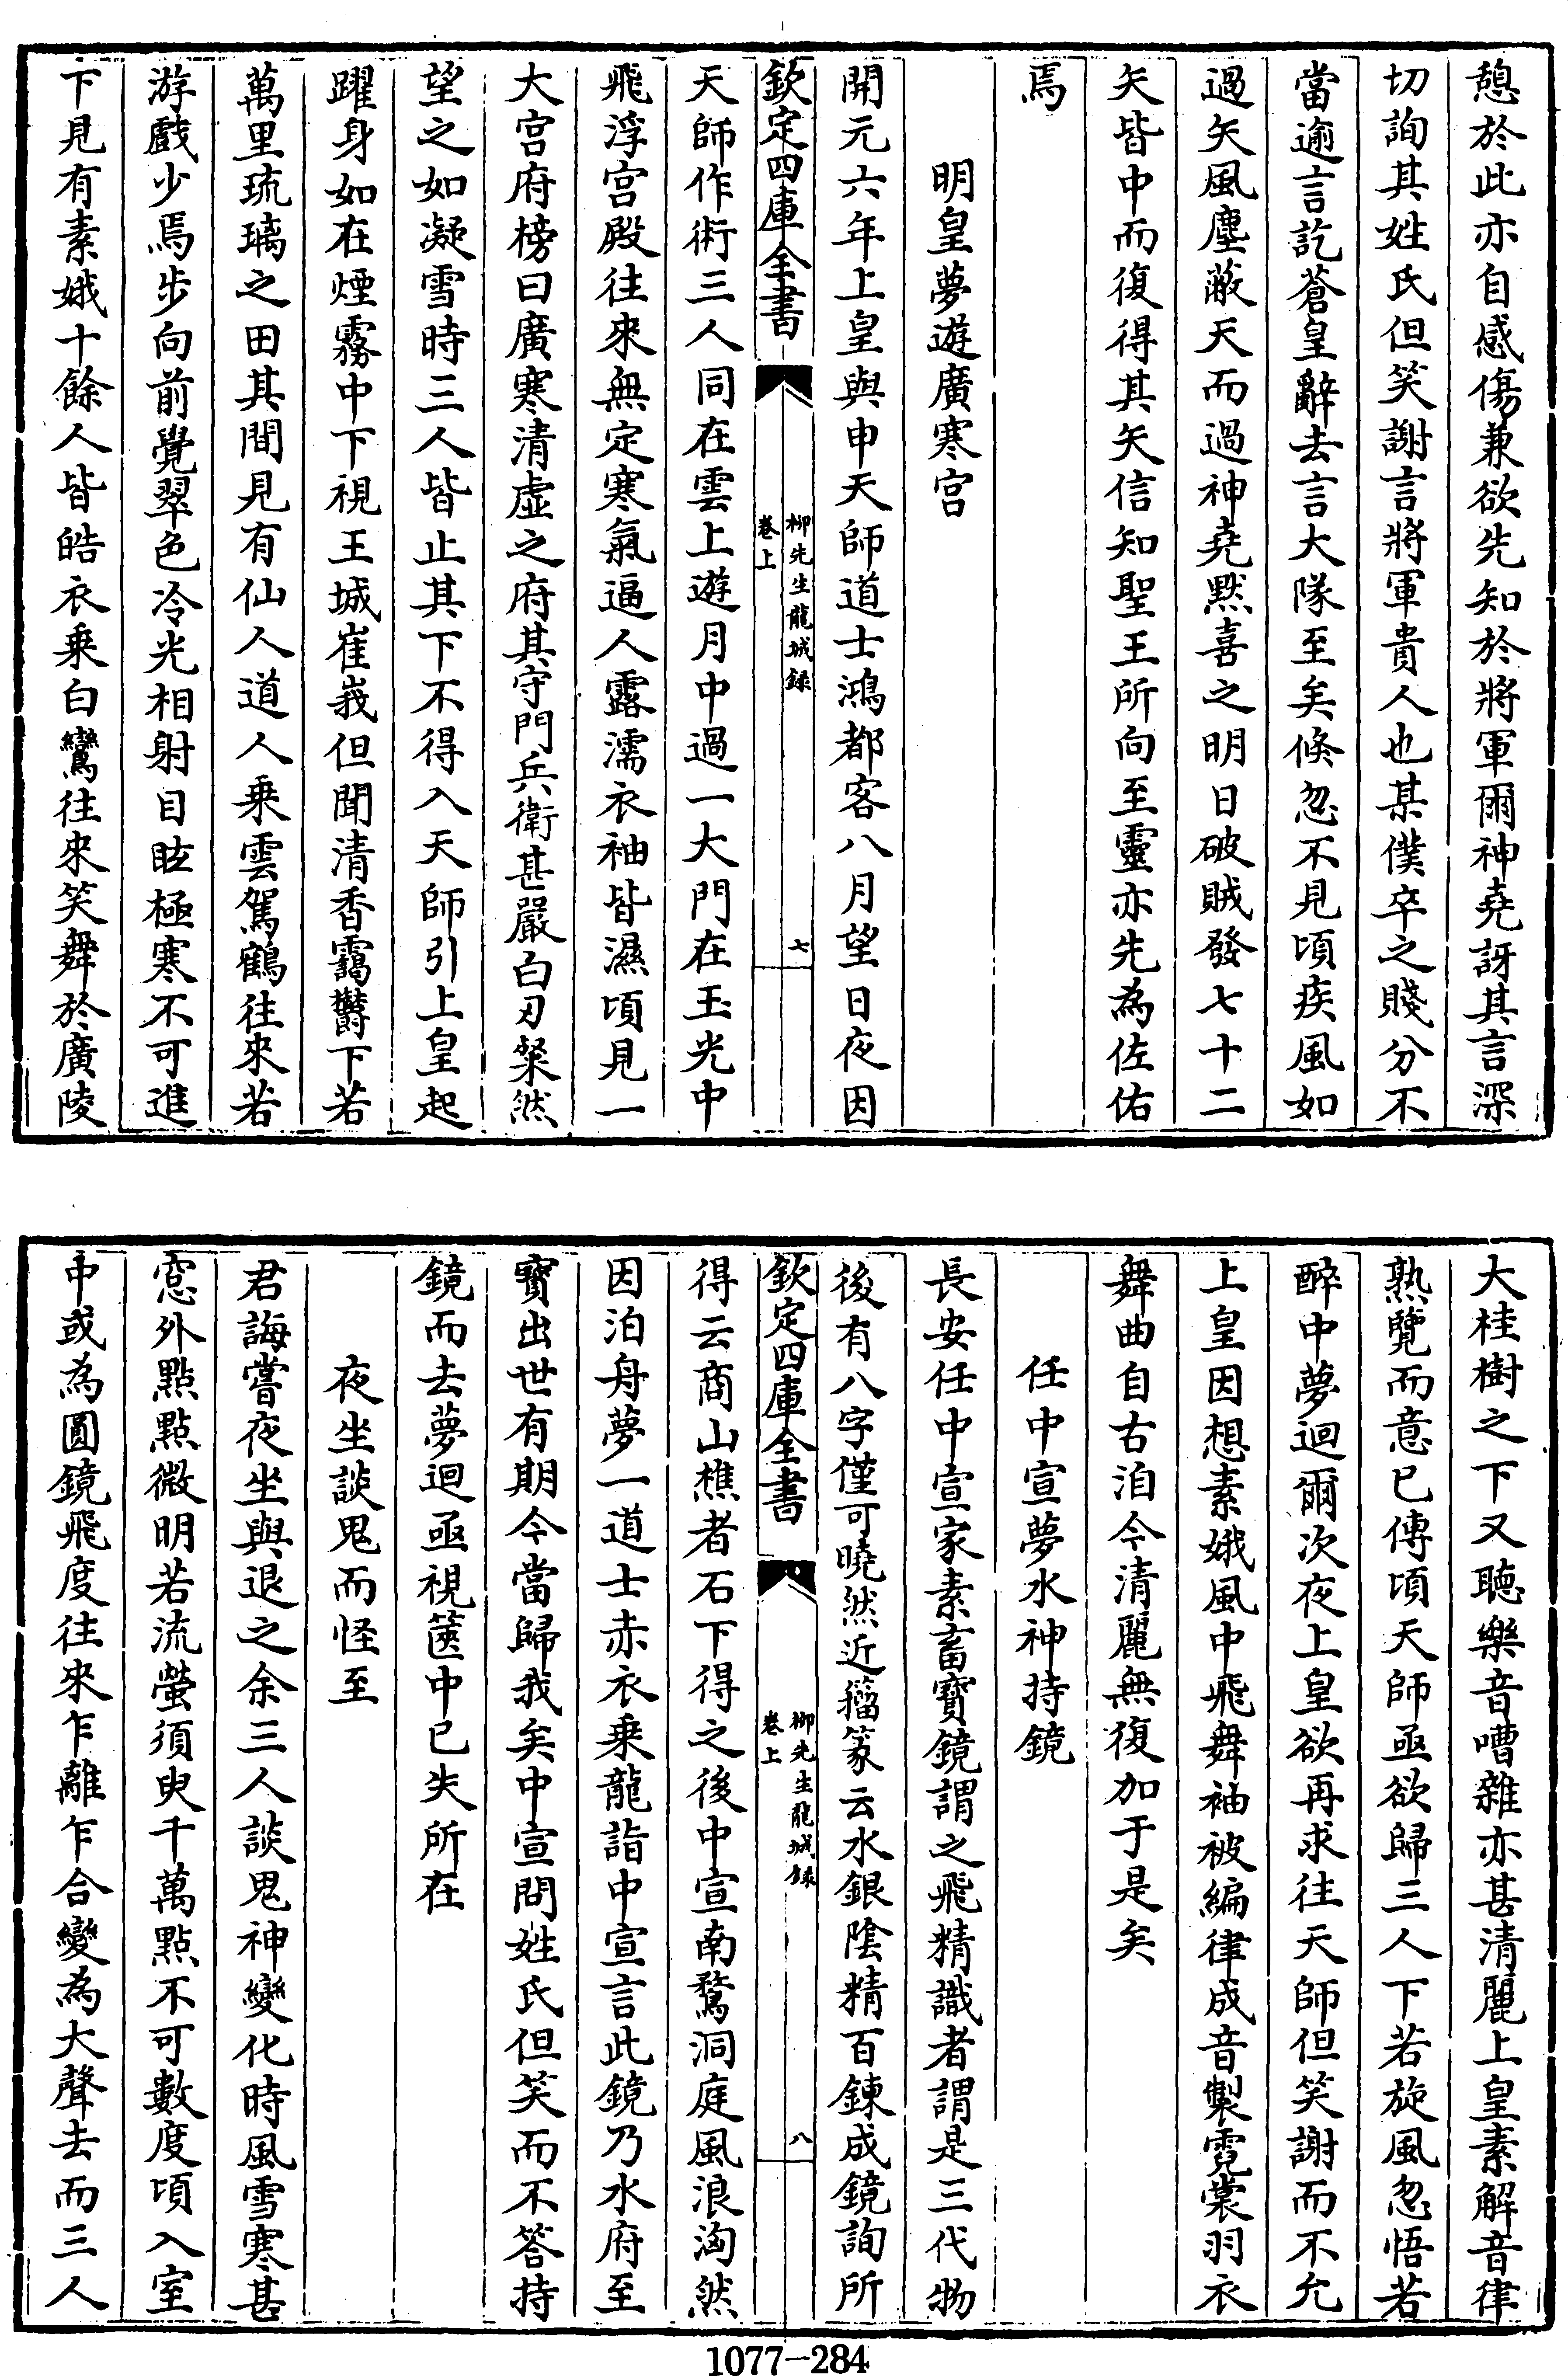 憩於此亦自感傷兼欲先知於將軍爾神堯訝其言深
切詢其姓氏但笑謝言將軍貴人也某僕卒之賤分不
當逾言訖蒼皇辭去言大隊至矣倐忽不見頃疾風如
過矢風塵蔽天而過神堯黙喜之明日破賊發七十二
矢皆中而復得其矢信知聖王所向至靈亦先為佐佑
焉
明皇夢遊廣寒宮
開元六年上皇與申天師道士鴻都客八月望日夜因
欽定四庫全書
柳先生龍城録
卷上
七
天師作術三人同在雲上遊月中過一大門在玉光中
飛浮宮殿往來無定寒氣逼人露濡衣袖皆濕頃見一
大宮府榜曰廣寒清虚之府其守門兵衛甚嚴白刃粲然
望之如凝雪時三人皆止其下不得入天師引上皇起
躍身如在煙霧中下視王城崔峩但聞清香靄鬱下若
萬里琉璃之田其間見有仙人道人乗雲駕鶴往來若
游戲少焉步向前覺翠色冷光相射目眩極寒不可進
下見有素娥十餘人皆皓衣乗白鸞往來笑舞於廣陵
大桂樹之下又聴樂音嘈雜亦甚清麗上皇素解音律
熟覽而意已傳頃天師亟欲歸三人下若旋風忽悟若
醉中夢迴爾次夜上皇欲再求往天師但笑謝而不允
上皇因想素娥風中飛舞袖被編律成音製霓裳羽衣
舞曲自古洎今清麗無復加于是矣
任中宣夢水神持鏡
長安任中宣家素畜寶鏡謂之飛精識者謂是三代物
後有八字僅可曉然近籀篆云水銀陰精百鍊成鏡詢所
欽定四庫全書
柳先生龍城録
卷上
八
得云商山樵者石下得之後中宣南鶩洞庭風浪洶然
因泊舟夢一道士赤衣乗龍詣中宣言此鏡乃水府至
寶出世有期今當歸我矣中宣問姓氏但笑而不答持
鏡而去夢迴亟視篋中已失所在
夜坐談鬼而怪至
君誨嘗夜坐與退之余三人談鬼神變化時風雪寒甚
窓外點點微明若流螢須臾千萬點不可數度頃入室
中或為圓鏡飛度往來乍離乍合變為大聲去而三人
1077-284